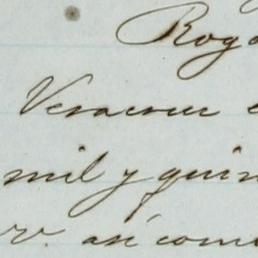 Rog
Veracruz
mil y quin
así com